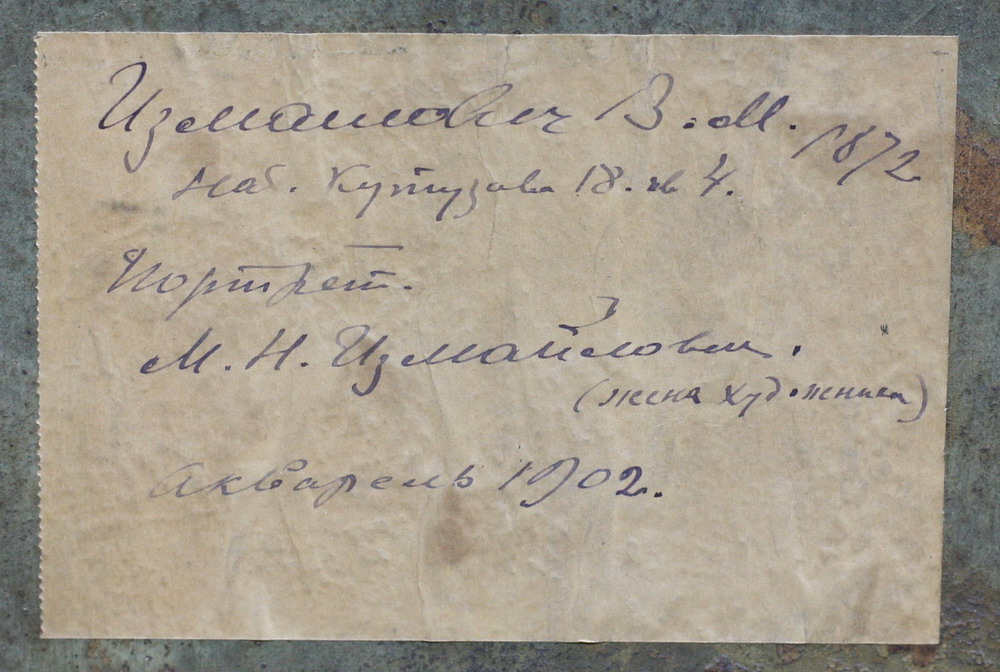 Измаилович В. М. 1872
наб. Кутузова 18. кв 4.
Портрет.
М. Н. Измайлович.
(жена художника)
Акварель 1902.